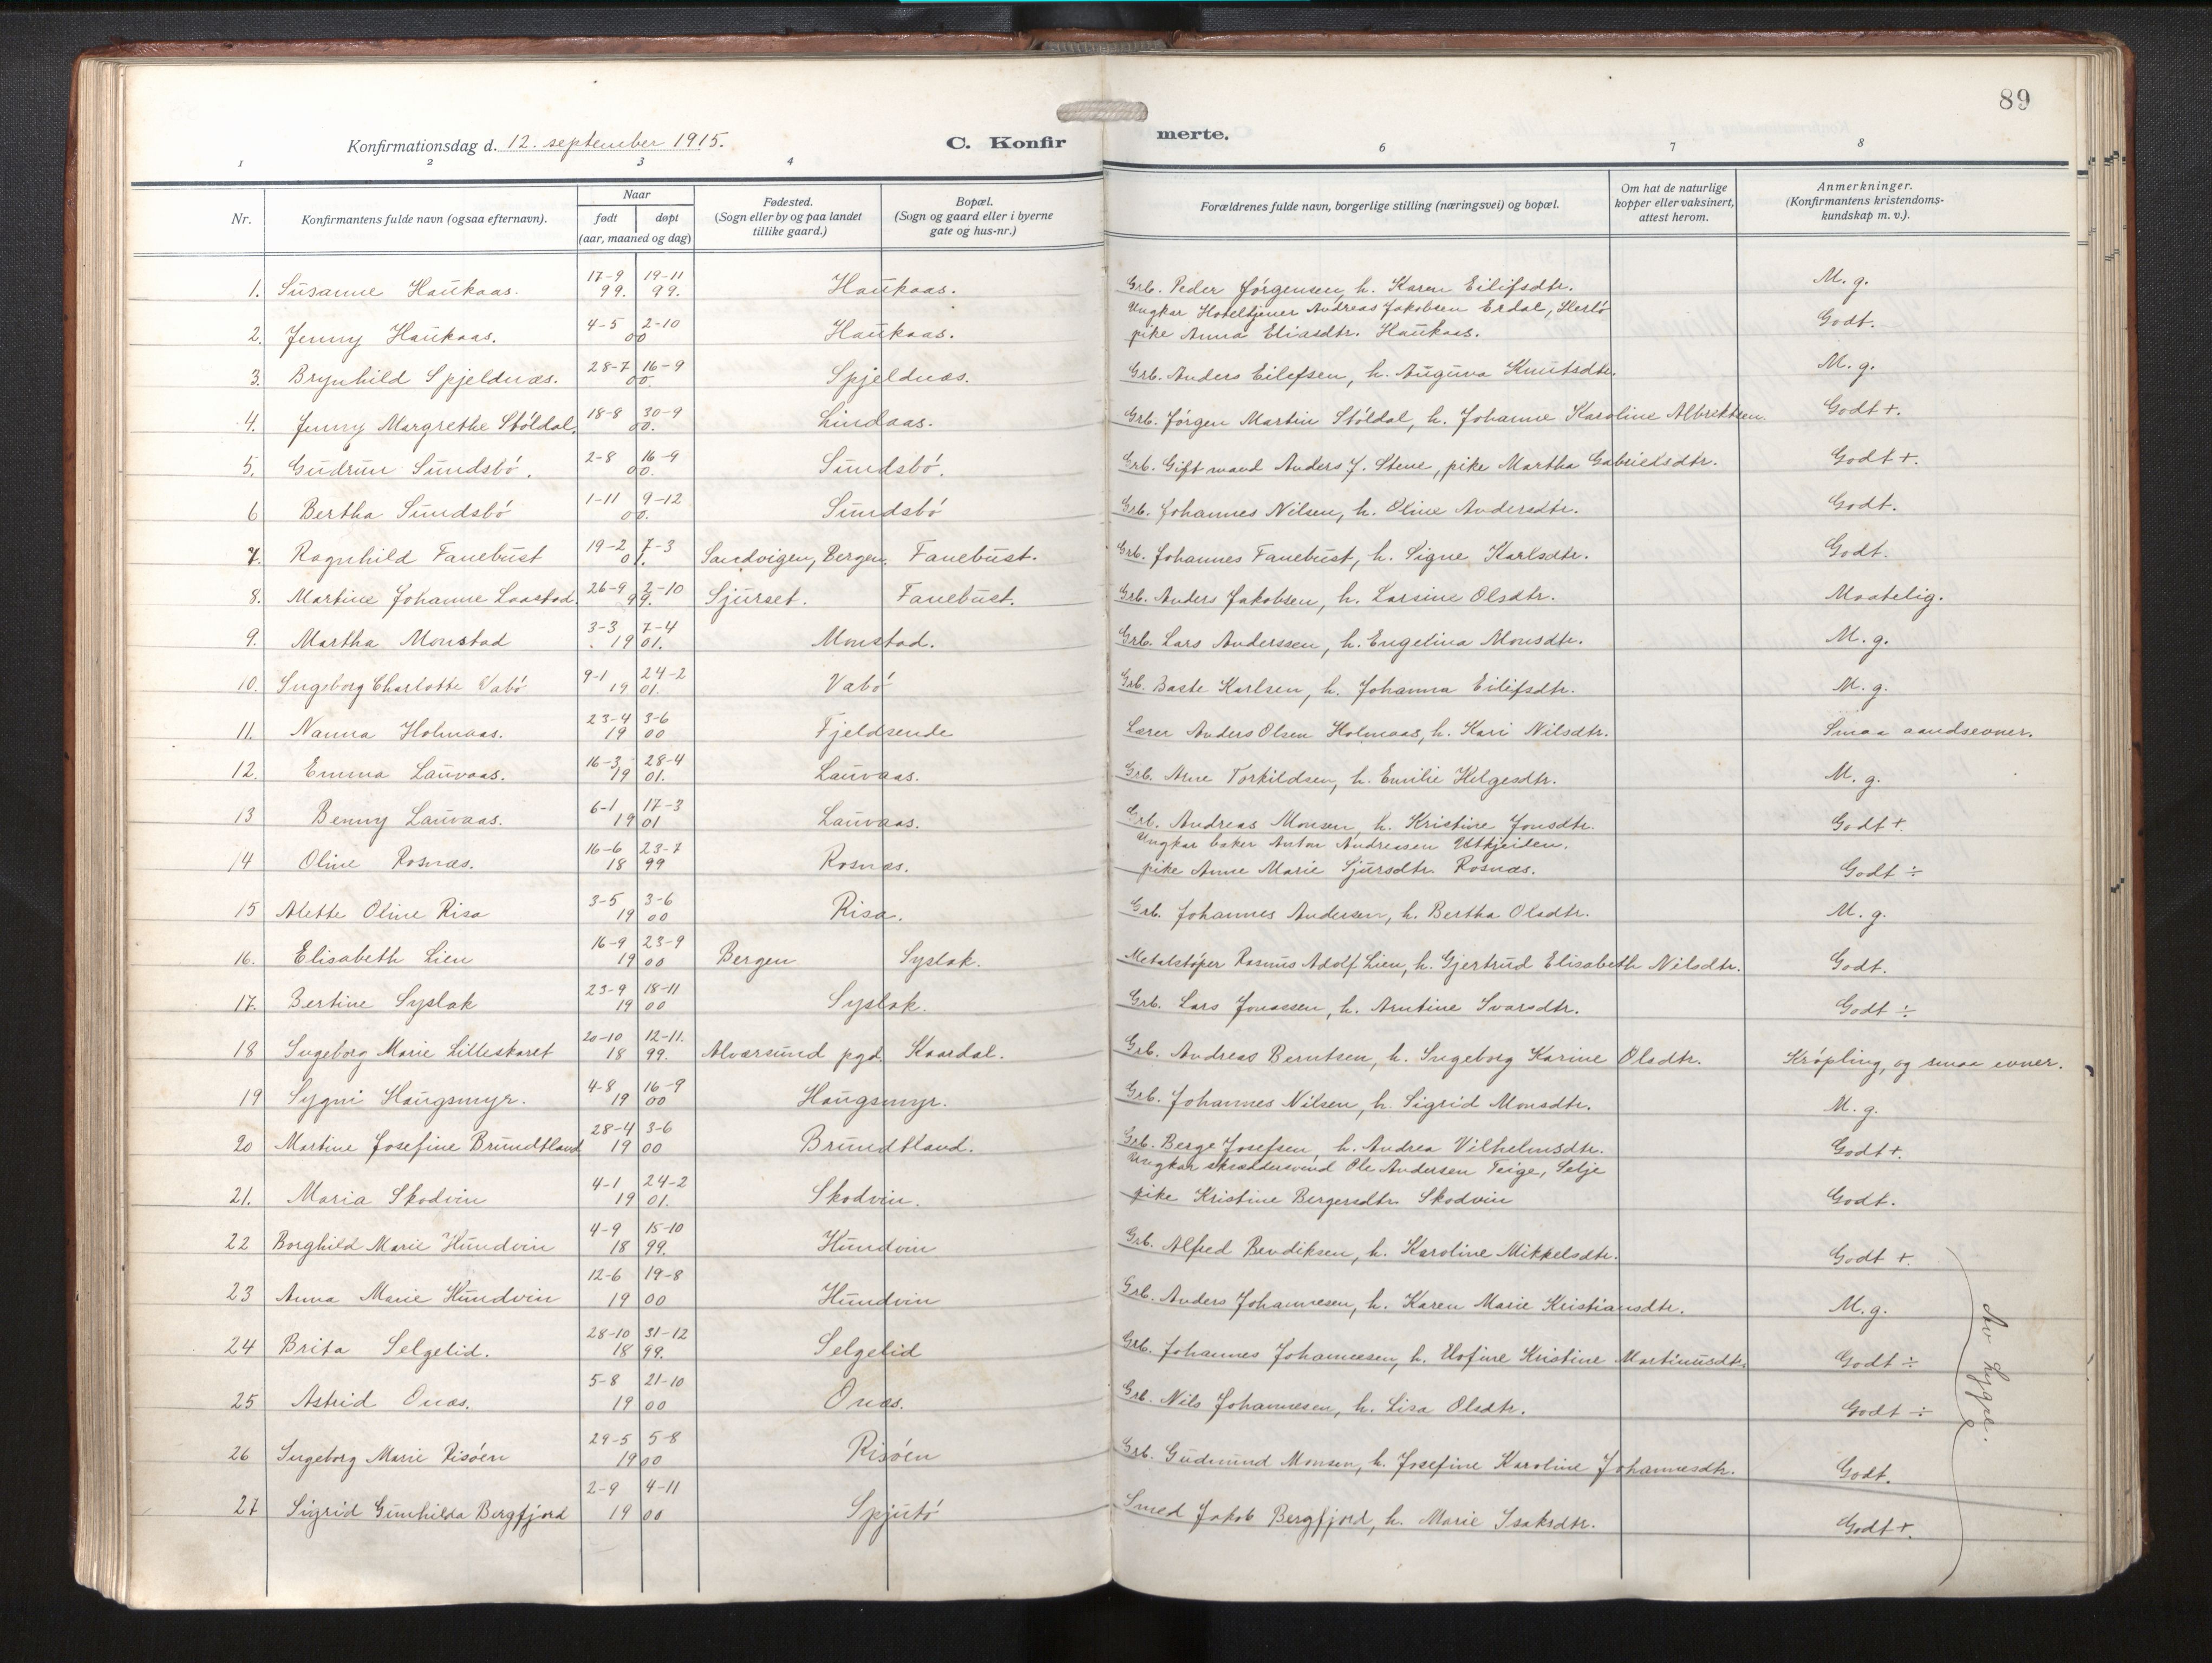 89
Konfirmationsdag d. 12. september 1915. C. Konfirmerte.
1 2 3 4 6 7 8
Nr. Konfirmantens fulde navn (ogsaa efternavn). Naar født døpt (aar, maaned og dag) Fødested. (Sogn eller by og paa landet tillike gaard.) Bopæl. (Sogn og gaard eller i byerne gate og hus-nr.) Forældrenes fulde navn, borgerlige stilling (næringsvei) og bopæl. Om hat de naturlige kopper eller vaksinert, attest herom. Anmerkninger. (Konfirmantens kristendomskundskap m. v.).
1. Susanne Haukaas. 17-9 99. 19-11 99. Haukaas. Grb. Peder Jørgensen, h. Karen Eilifsdtr. M. g.
2. Jenny Haukaas. 4-5 2-10 00 Haukaas. Ungkar Hoteltjener Andreas Jakobsen Erdal, Herlø pike Anna Eliasdtr. Haukaas. Godt.
3. Brynhild Spjeldnæs. 28-7 16-9 00. Spjeldnæs. Grb. Anders Eilefsen, h. Auguna Knutsdtr. M. g.
4. Jenny Margrethe Støldal. 18-8 30-9 00. Lindaas. Grb. Jørgen Martin Støldal, h. Johanne Karoline Albrektsen. Godt +.
5. Gudrun Sundsbø. 2-8 16-9 00. Sundsbø. Grb. Gift mand Anders J. Stene, pike Martha Gabrielsdtr. Godt +.
6 Bertha Sundsbø 1-11 9-12 00. Sundsbø Grb. Johannes Nilsen, h. Oline Andersdtr. Godt.
7. Ragnhild Fanebust 19-2 7-3 01. Sandvigen, Bergen. Fanebust. Grb. Johannes Fanebust, h. Signe Karlsdtr. Godt.
8. Martine Johanne Laastad. 26-9 2-10 99. Sjurset. Fanebust. Grb. Anders Jakobsen, h. Larsine Olsdtr. Maatelig.
9. Martha Monstad 3-3 7-4 1901. Monstad. Grb. Lars Anderssen, h. Engelina Monsdtr. M. g.
10. Ingeborg Charlotte Vabø 9-1 24-2 1901. Vabø Grb. Baste Karlsen, h. Johanna Eilifsdtr. M. g.
11. Nanna Holmaas. 23-4 3-6 1900 Fjeldsende Lærer Anders Olsen Holmaas, h. Kari Nilsdtr. Smaa aandsevner.
12. Emma Lauvaas. 16-3 28-4 1901. Lauvaas. Grb. Arne Torkildsen, h. Emilie Helgesdtr. M. g.
13 Benny Lauvaas. 6-1 17-3 1901 Lauvaas. Grb. Andreas Monsen, h. Kristine Jonsdtr. Godt +
14 Oline Rosnæs. 16-6 23-7 1899 Rosnæs. Ungkar baker Anton Andreasen pike Anne Marie Sjursdtr. Rosnæs. Godt ÷
15 Alette Oline Risa 3-5 3-6 1900 Risa. Grb. Johannes Andersen, h. Bertha Olsdtr. M. g.
16. Elisabeth Lien 16-9 23-9 1900 Bergen Syslak. Metalstøper Rasmus Adolf Lien, h. Gjertrud Elisabeth Nilsdtr. Godt.
17. Bertine Syslak 23-9 18-11 1900 Syslak. Grb. Lars Jonassen, h. Arntine Ivarsdtr. Godt ÷
18 Ingeborg Marie Lilleskaret 20-10 12-11. 1899. Alversund pgd. Kaardal. Grb. Andreas Berntsen, h. Ingeborg Karine Olsdtr. Krøpling, og smaa evner.
19 Sygni Haugsmyr. 4-8 16-9 1900 Haugsmyr. Grb. Johannes Nilsen, h. Sigrid Monsdtr. M. g.
20 Martine Josefine Brundtland 28-4 3-6 1900 Brundtland. Grb. Berge Josefsen, h. Andrea Vilhelmsdtr. Godt +.
21. Maria Skodvin 4-1 24-2 1901. Skodvin. Ungkar skræddersvend Ole Andersen Teige, Selje pike Kristine Bergersdtr. Skodvin Godt.
22 Borghild Marie Hundvin 4-9 15-10 1899. Hundvin Grb. Alfred Bendiksen, h. Karoline Mikkelsdtr. Godt +.
23 Anna Marie Hundvin 12-6 19-8 1900 Hundvin Grb. Anders Johannesen, h. Karen Marie Kristiansdtr. M. g.
24 Brita Selgelid. 28-10 31-12 1899. Selgelid Grb. Johannes Johannesen, h. Kristine Martinusdtr. Godt ÷
25 Astrid Onæs. 5-8 21-10 1900 Onæs. Grb. Nils Johannesen, h. Lisa Olsdtr. Godt ÷
26 Ingeborg Marie Risøen 29-5 5-8 1900 Risøen Grb. Gudmund Monsen, h. Josefine Karoline Johannesdtr. Godt.
27 Sigrid Gunhilda Bergfjord 2-9 4-11 1900 Spjutø Smed Jakob Bergfjord, h. Marie Isaksdtr. Godt +.
Av Lygre.